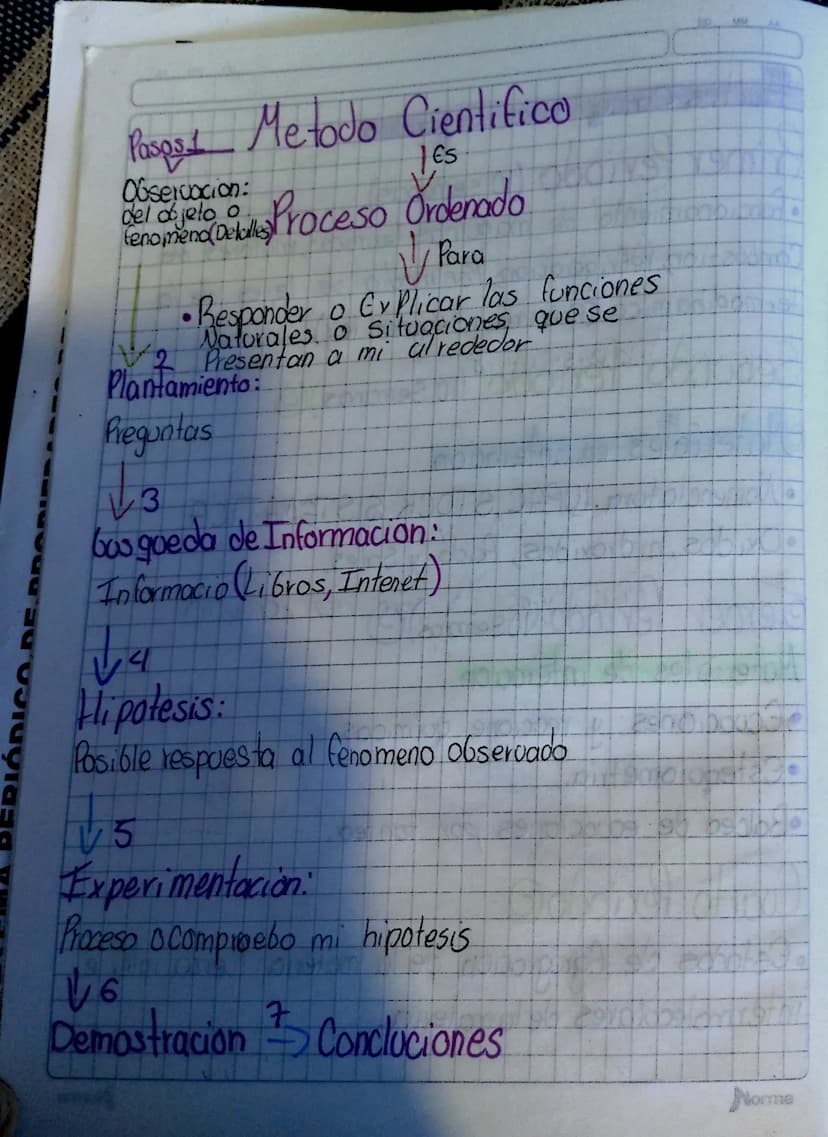 Metodo Cientifico
Pasos 1
Es
Observacion:
del objeto o
fenomeno (Detalles)
Proceso Ordenado
Para
• Responder o Explicar las funciones
Naturales o situaciones que se
Presentan a mi alrededor
2
Plantamiento:
Preguntas
3
busqueda de Informacion:
Informacio (Libros, Intenet)
4
Hipotesis:
Posible respuesta al fenomeno observado
5
Experimentación:
Proceso o compruebo mi hipotesis
6
Demostracion 7 Concluciones
Norma